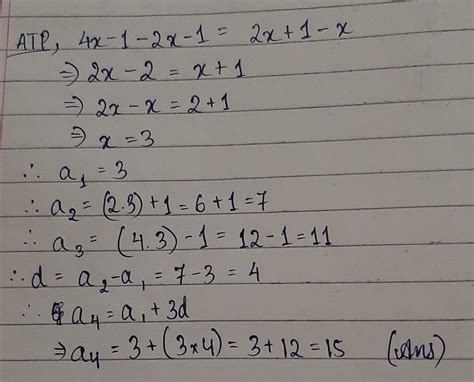 ATP, 4x-1-2x-1 = 2x+1-x
⇒ 2x-2 = x+1
⇒ 2x-x = 2+1
⇒ x = 3
∴ a₁ = 3
∴ a₂ = (2.3)+1 = 6+1 = 7
∴ a₃ = (4.3)-1 = 12-1 = 11
∴ d = a₂-a₁ = 7-3 = 4
∴ a₄ = a₁+3d
⇒ a₄ = 3+(3×4) = 3+12 = 15 (Ans)